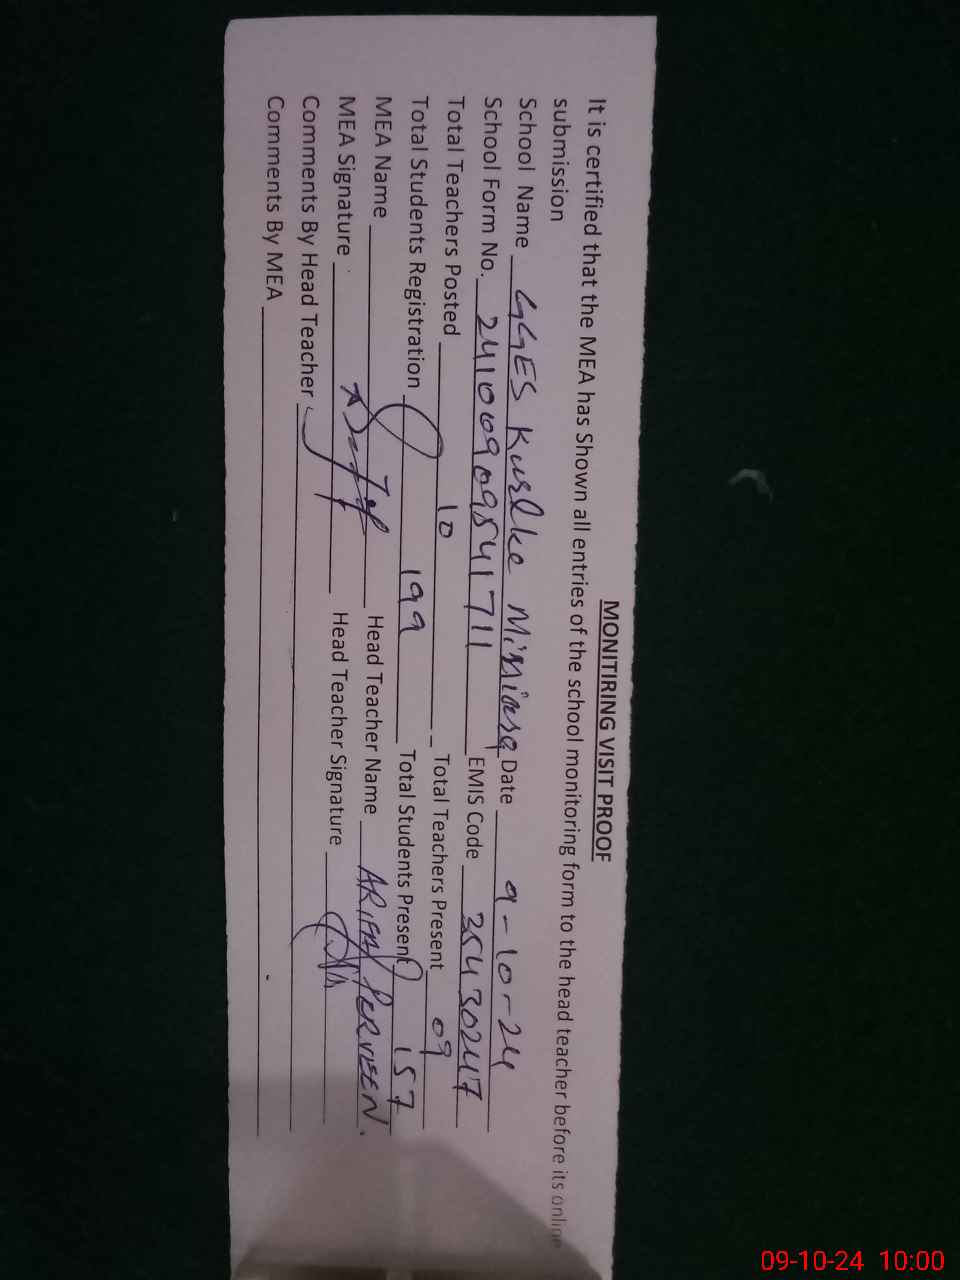 MONITIRING VISIT PROOF
It is certified that the MEA has Shown all entries of the school monitoring form to the head teacher before its online
submission
School Name GGES Date 9-10-24
School Form No. 24100909541711 EMIS Code 35430247
Total Teachers Posted 10 Total Teachers Present 09
Total Students Registration 199 Total Students Present 157
MEA Name Head Teacher Name ARIFA PERVEEN.
MEA Signature Head Teacher Signature
Comments By Head Teacher
Comments By MEA
09-10-24 10:00